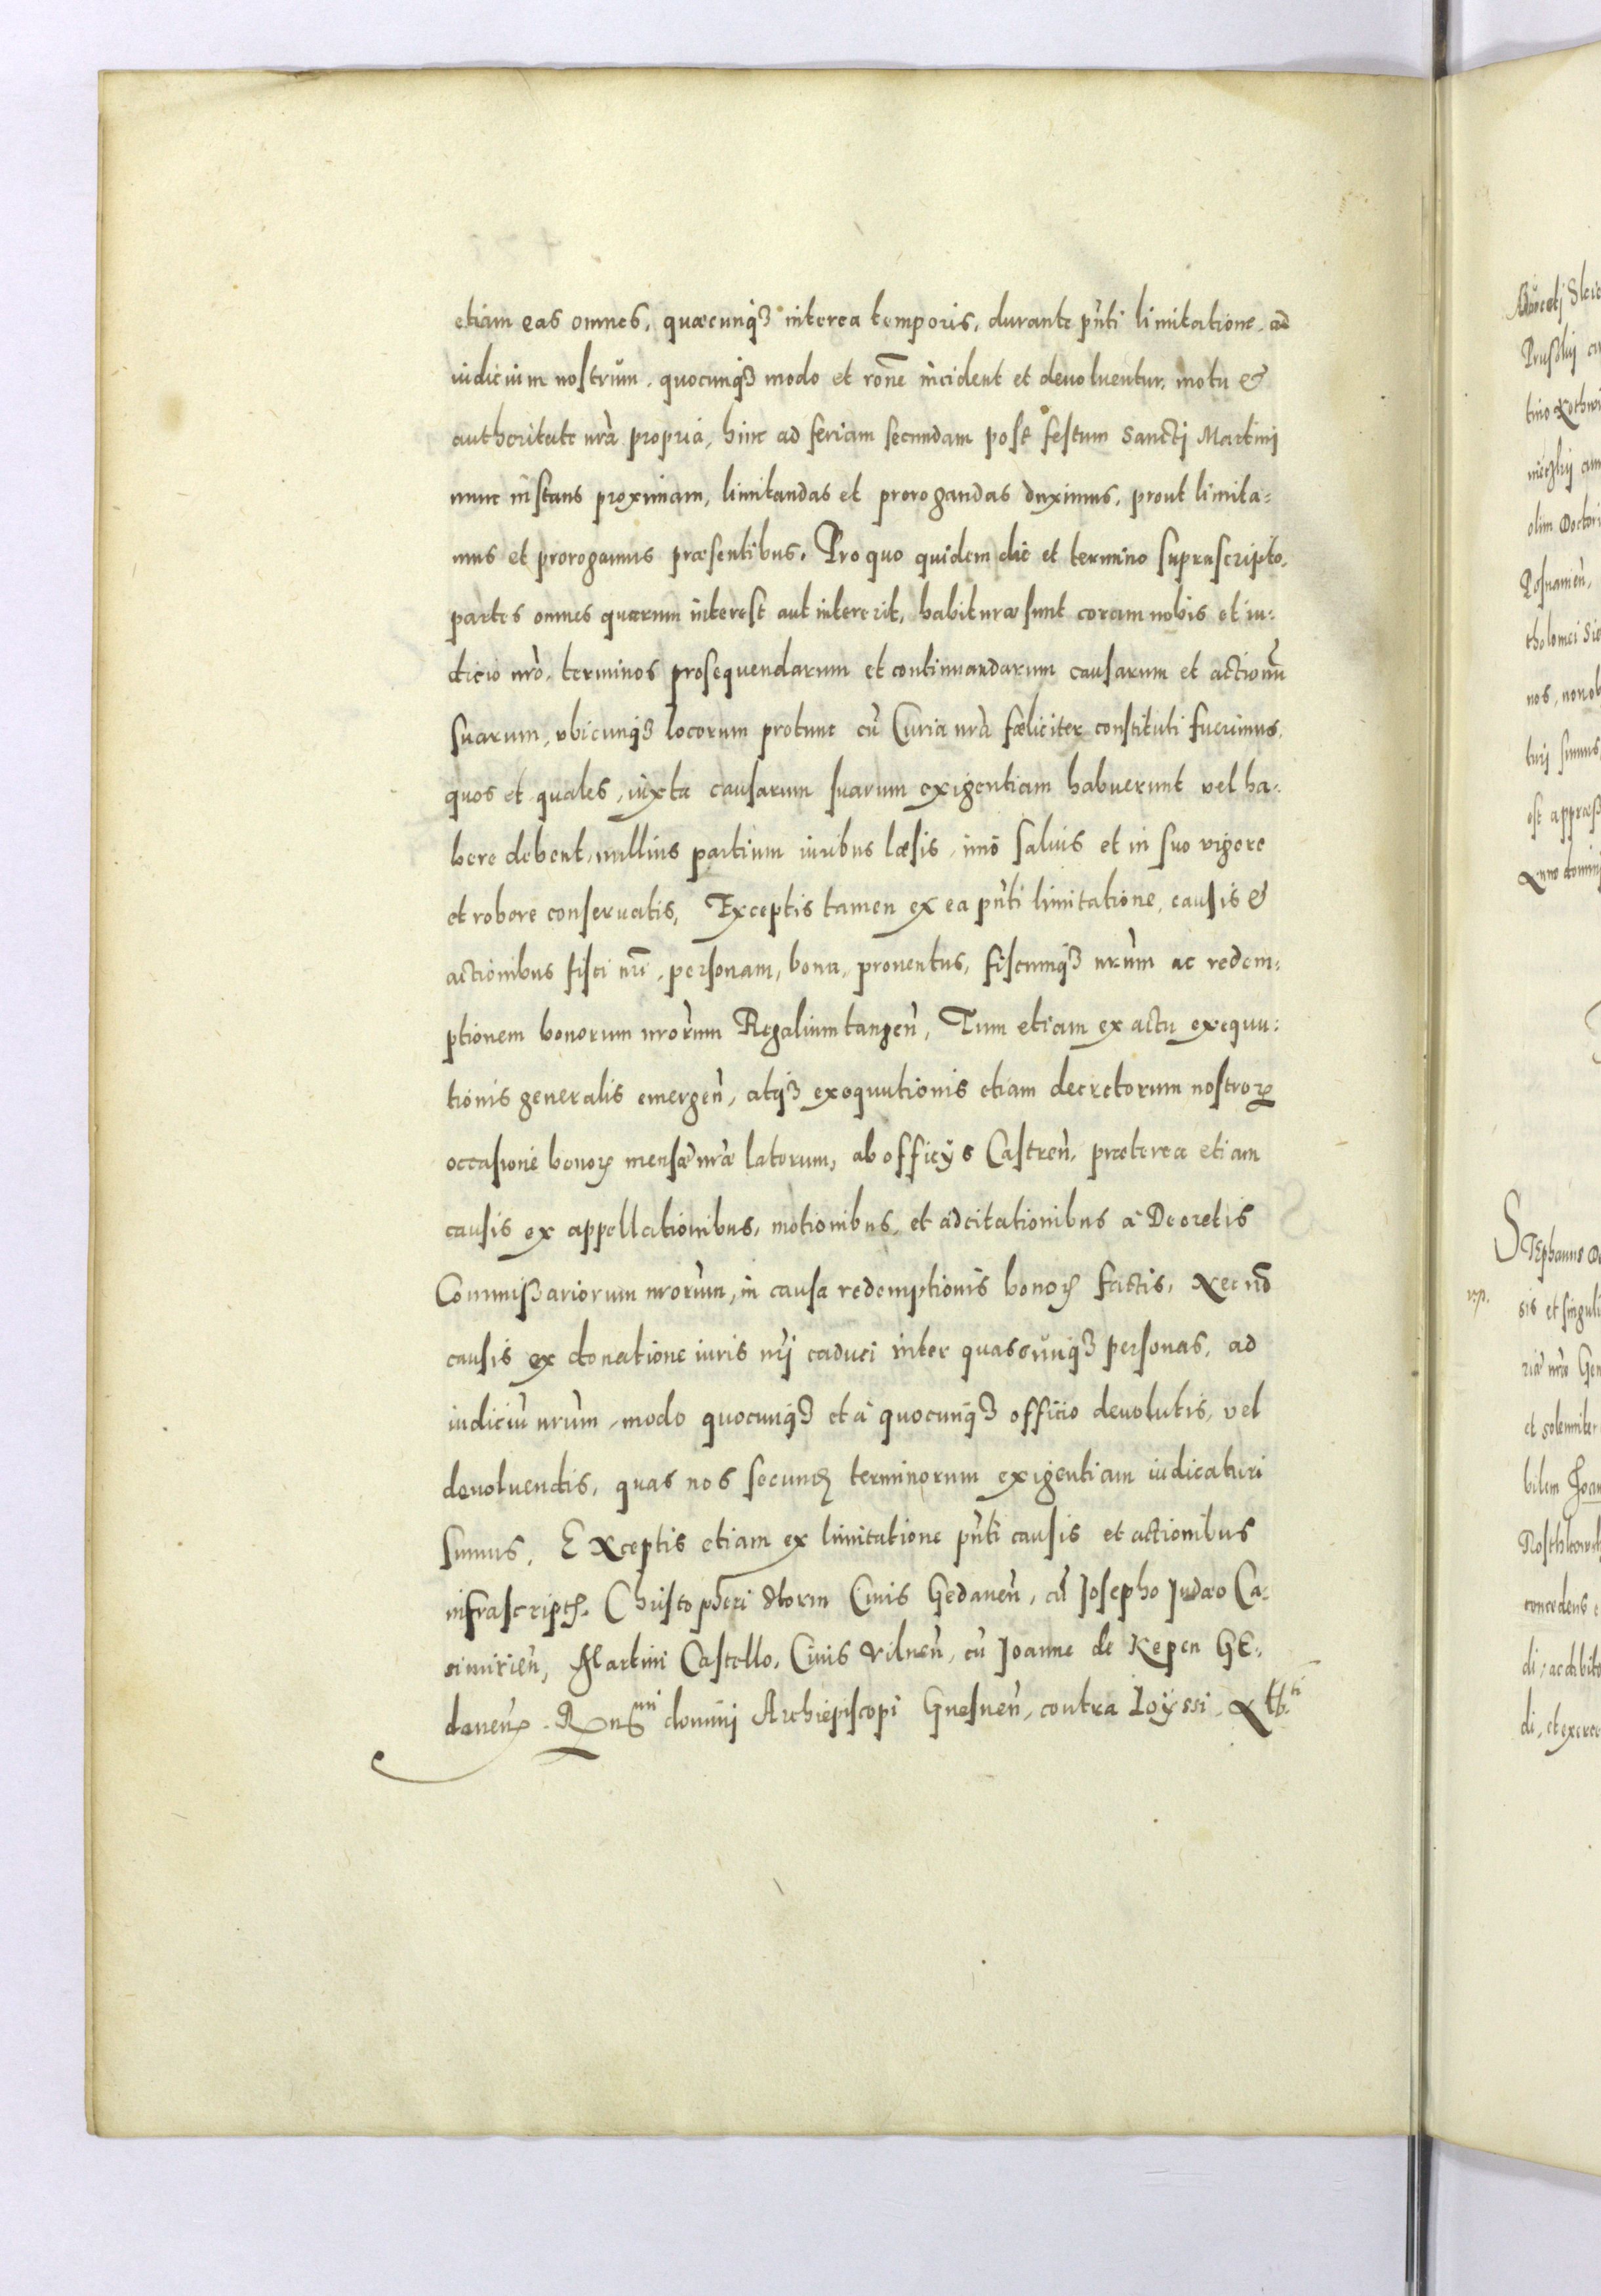 etiam eas omnes, quæcunqꝫ interea temporis, durante pn̄ti limitatione ad
iudicium nostrum, quocunqꝫ modo et rōne incident et deuoluentur, motu &
authoritate nrā propria, hinc ad feriam secundam post festum Sancti Martini
nunc instans proximam, limitandas et prorogandas duximus, prout limita=
mus et prorogamus præsentibus. Pro quo quidem die et termino suprascripto,
partes omnes quarum interest aut intererit, habituræ sunt coram nobis et iu=
dicio nrō, terminos prosequendarum et continuandarum causarum et actionū
suarum, vbicunqꝫ locorum protunc cū Curia nrā fœliciter constituti fuerimus,
quos et quales, iuxta causarum suarum exigentiam habuerunt vel ha=
bere debent, nullius partium iuribus læsis, imò saluis et in suo vigore
et robore conseruatis, Exceptis tamen ex ea pn̄ti limitatione, causis &
actionibus fisci nrī, personam, bona, prouentus, fiscumqꝫ nrūm ac redem=
ptionem bonorum nrōrum Regalium tangen̄, Tum etiam ex actu exequu=
tionis generalis emergen̄, atqꝫ exequutionis etiam decretorum nostroꝝ
occasione bonoꝝ mensæ nræ latorum, ab officijs Castren̄, præterea etiam
causis ex appellationibus, motionibus, et adcitationibus à Decretis
Commissariorum nrōrum, in causa redemptionis bonoꝝ factis, Nec nō
causis ex donatione iuris nrī caduci inter quascunqꝫ personas, ad
iudiciū nrūm, modo quocunqꝫ et à quocunqꝫ officio deuolutis, vel
deuoluendis, quas nos secundꝫ terminorum exigentiam iudicaturi
sumus, Exceptis etiam ex limitatione pn̄ti causis et actionibus
infrascriptꝭ. Christopheri Storm Ciuis Gedanen̄, cū Josepho Judæo Ca=
simirien̄, Martini Castello, Ciuis Vilnen̄, cū Joanne de Kepen GE=
danen̄. Rn̄dssmi domini Archiepiscopi Gnesnen̄, contra Loyssi
Prusskij
olim Doctori
Posnanien̄,
tholomei
nos, nonob
turi sumus,
Anno domini
Stephanus
v. p.
sis et singuli
riā nræ Gen
et solemniter
bilem Joan
concedens
di, et exercen